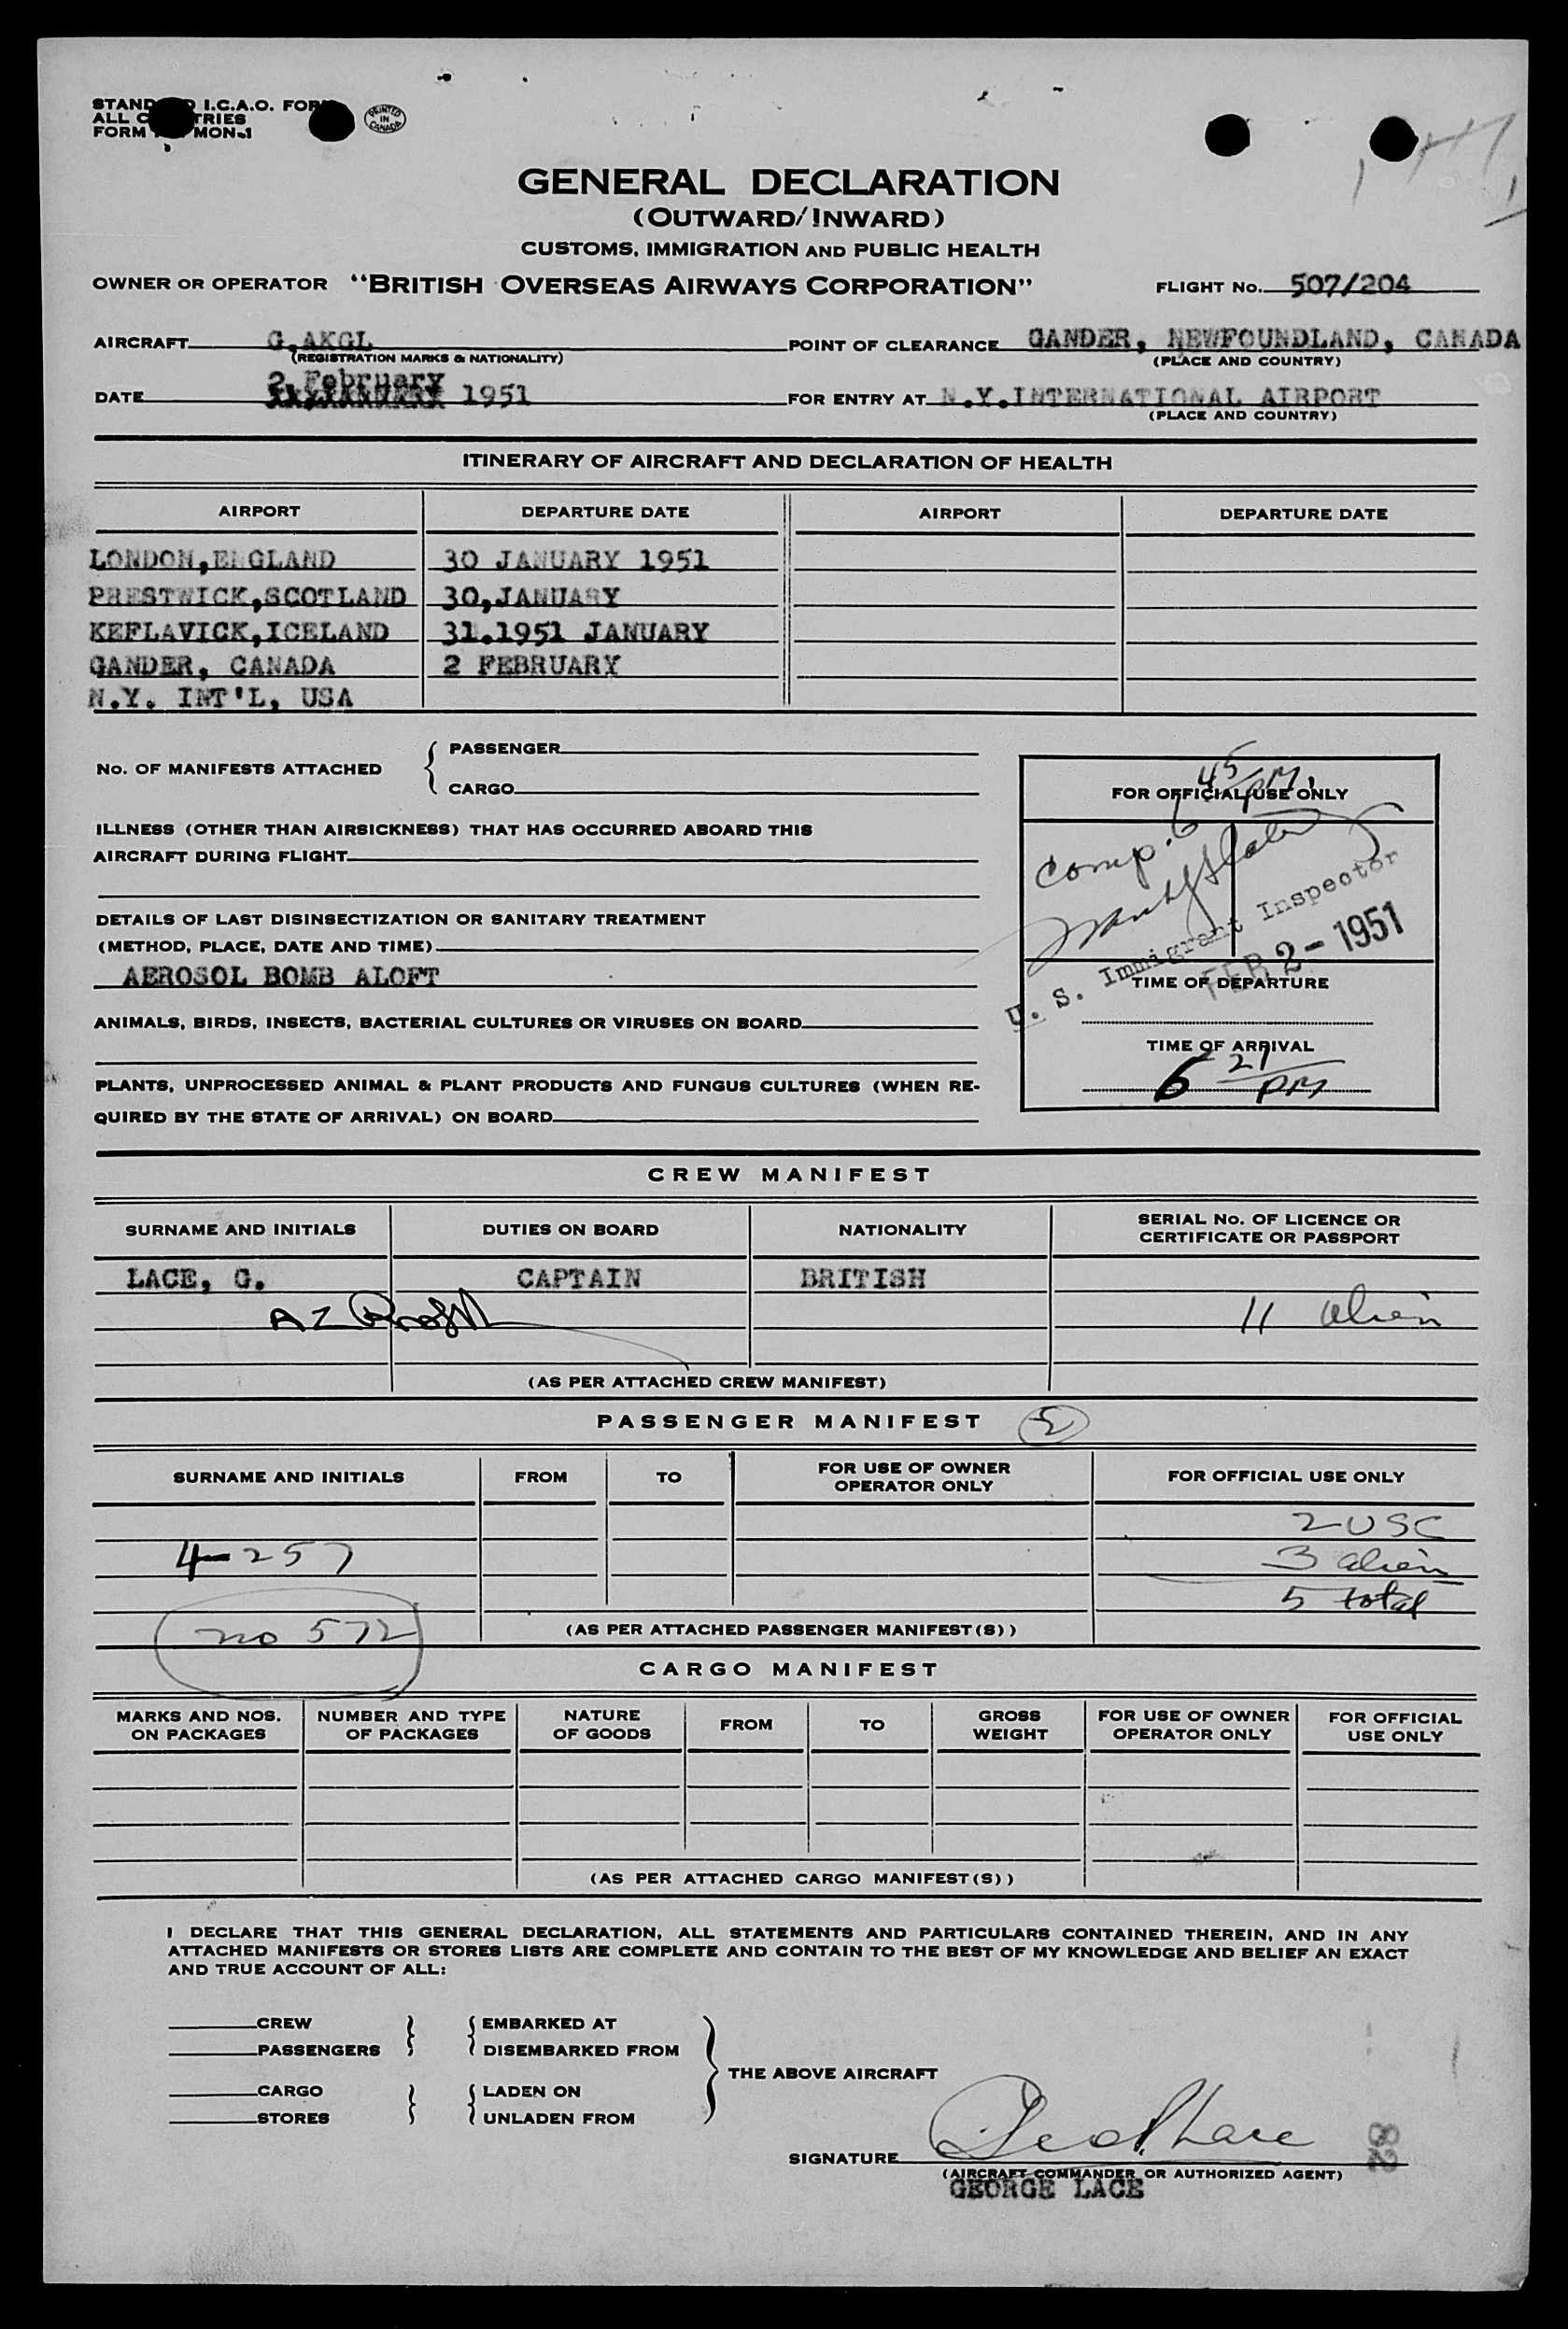 I.C.A.O.
ALL
FORM MON-1
PRINTED IN CANADA
GENERAL DECLARATION
(OUTWARD/INWARD)
CUSTOMS, IMMIGRATION AND PUBLIC HEALTH
OWNER OR OPERATOR "BRITISH OVERSEAS AIRWAYS CORPORATION" FLIGHT No. 507/204
AIRCRAFT G.AKGL POINT OF CLEARANCE GANDER, NEWFOUNDLAND, CANADA
(REGISTRATION MARKS & NATIONALITY) (PLACE AND COUNTRY)
2 February
DATE 1951 FOR ENTRY AT N.Y.INTERNATIONAL AIRPORT
(PLACE AND COUNTRY)
ITINERARY OF AIRCRAFT AND DECLARATION OF HEALTH
AIRPORT DEPARTURE DATE AIRPORT DEPARTURE DATE
LONDON,ENGLAND 30 JANUARY 1951
PRESTWICK,SCOTLAND 30,JANUARY
KEFLAVICK,ICELAND 31.1951 JANUARY
GANDER, CANADA 2 FEBRUARY
N.Y. INT'L, USA
No. OF MANIFESTS ATTACHED
PASSENGER
CARGO
ILLNESS (OTHER THAN AIRSICKNESS) THAT HAS OCCURRED ABOARD THIS
AIRCRAFT DURING FLIGHT
DETAILS OF LAST DISINSECTIZATION OR SANITARY TREATMENT
(METHOD, PLACE, DATE AND TIME)
AEROSOL BOMB ALOFT
ANIMALS, BIRDS, INSECTS, BACTERIAL CULTURES OR VIRUSES ON BOARD
PLANTS, UNPROCESSED ANIMAL & PLANT PRODUCTS AND FUNGUS CULTURES (WHEN RE-
QUIRED BY THE STATE OF ARRIVAL) ON BOARD
FOR OFFICIAL USE ONLY
Comp. 6 45 PM
U. S. Immigrant Inspector
FEB 2 - 1951
TIME OF DEPARTURE
TIME OF ARRIVAL
6 21 PM
CREW MANIFEST
SURNAME AND INITIALS DUTIES ON BOARD NATIONALITY SERIAL No. OF LICENCE OR
CERTIFICATE OR PASSPORT
LACE, G. CAPTAIN BRITISH
11 alien
(AS PER ATTACHED CREW MANIFEST)
PASSENGER MANIFEST 5
SURNAME AND INITIALS FROM TO FOR USE OF OWNER
OPERATOR ONLY FOR OFFICIAL USE ONLY
2 USC
4-257 3 alien
5 total
no 572 (AS PER ATTACHED PASSENGER MANIFEST(S))
CARGO MANIFEST
MARKS AND NOS.
ON PACKAGES NUMBER AND TYPE
OF PACKAGES NATURE
OF GOODS FROM TO GROSS
WEIGHT FOR USE OF OWNER
OPERATOR ONLY FOR OFFICIAL
USE ONLY
(AS PER ATTACHED CARGO MANIFEST(S))
I DECLARE THAT THIS GENERAL DECLARATION, ALL STATEMENTS AND PARTICULARS CONTAINED THEREIN, AND IN ANY
ATTACHED MANIFESTS OR STORES LISTS ARE COMPLETE AND CONTAIN TO THE BEST OF MY KNOWLEDGE AND BELIEF AN EXACT
AND TRUE ACCOUNT OF ALL:
CREW EMBARKED AT
PASSENGERS DISEMBARKED FROM
THE ABOVE AIRCRAFT
CARGO LADEN ON
STORES UNLADEN FROM
SIGNATURE
(AIRCRAFT COMMANDER OR AUTHORIZED AGENT)
GEORGE LACE
82